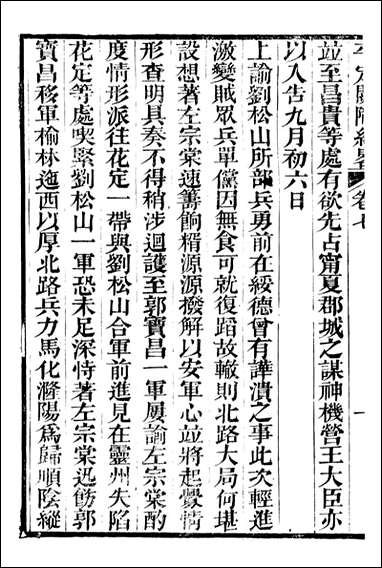 平定關隴紀略 卷七
一
並至昌貴等處有欲先占甯夏郡城之謀神機營王大臣亦
以入吿九月初六日
上諭劉松山所部兵勇前在綏德曾有譁潰之事此次輕進
激變賊眾兵單儻因無食可就復蹈故轍則北路大局何堪
設想著左宗棠速籌餉糈源源撥解以安軍心並將起釁情
形查明具奏不得稍涉迴護至郭寶昌一軍屢諭左宗棠酌
度情形派往花定一帶與劉松山合軍前進見在靈州失陷
花定等處喫緊劉松山一軍恐未足深恃著左宗棠迅飭郭
寶昌移軍榆林迤西以厚北路兵力馬化漋陽爲歸順陰縱